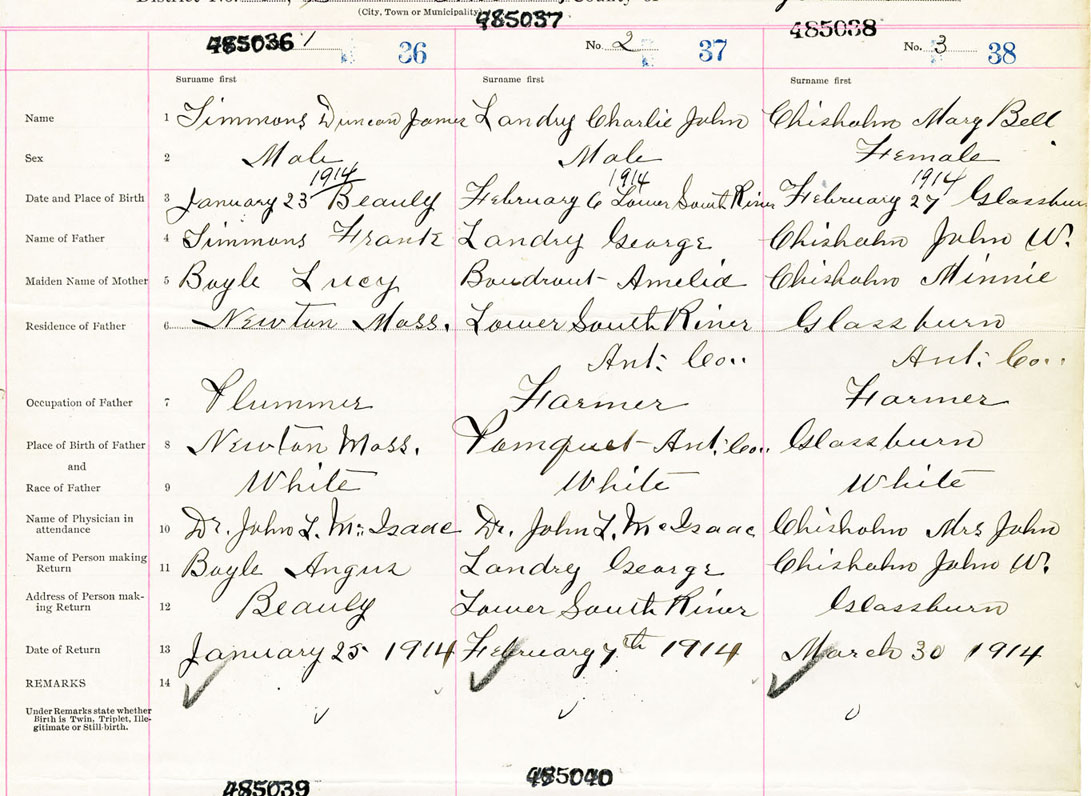 (City, Town or Municipality)
485036 1 36
485037
No. 2 37
485038
No. 3 38
Surname first Surname first Surname first
Name 1 Simmons Duncan James Landry Charlie John Chisholm Mary Bell
Sex 2 Male Male Female
1914 1914 1914
Date and Place of Birth 3 January 23 Beauly February 6 Lower South River February 27 Glassburn
Name of Father 4 Simmons Frank Landry George Chisholm John W.
Maiden Name of Mother 5 Boyle Lucy Boudrout Amelia Chisholm Minnie
Residence of Father 6 Newton Mass. Lower South River Glassburn
Ant. Co. Ant. Co.
Occupation of Father 7 Plummer Farmer Farmer
Place of Birth of Father 8 Newton Mass. Pomquet Ant. Co. Glassburn
and
Race of Father 9 White White White
Name of Physician in
attendance 10 Dr. John L. McIsaac Dr. John L. McIsaac Chisholm Mrs John
Name of Person making
Return 11 Boyle Angus Landry George Chisholm John W.
Address of Person mak-
ing Return 12 Beauly Lower South River Glassburn
Date of Return 13 January 25 1914 February 7th 1914 March 30 1914
REMARKS 14
Under Remarks state whether
Birth is Twin, Triplet, Ille-
gitimate or Still-birth.
485039 485040